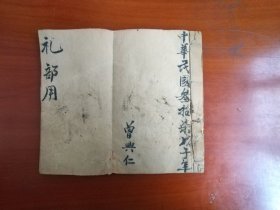 中華民國叁拾柒戊子年
曾興仁
礼部用